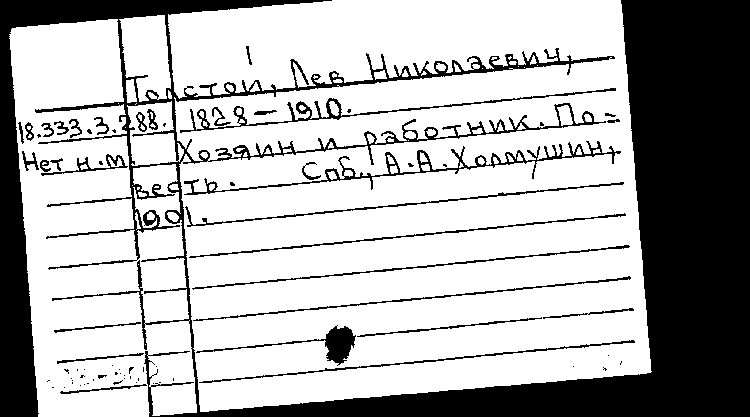 1
Толстой, Лев Николаевич,
18.333.3.288. 1828 – 1910.
Нет н.м. Хозяин и работник. По=
весть. Спб., А.А.Холмушин,
1901.